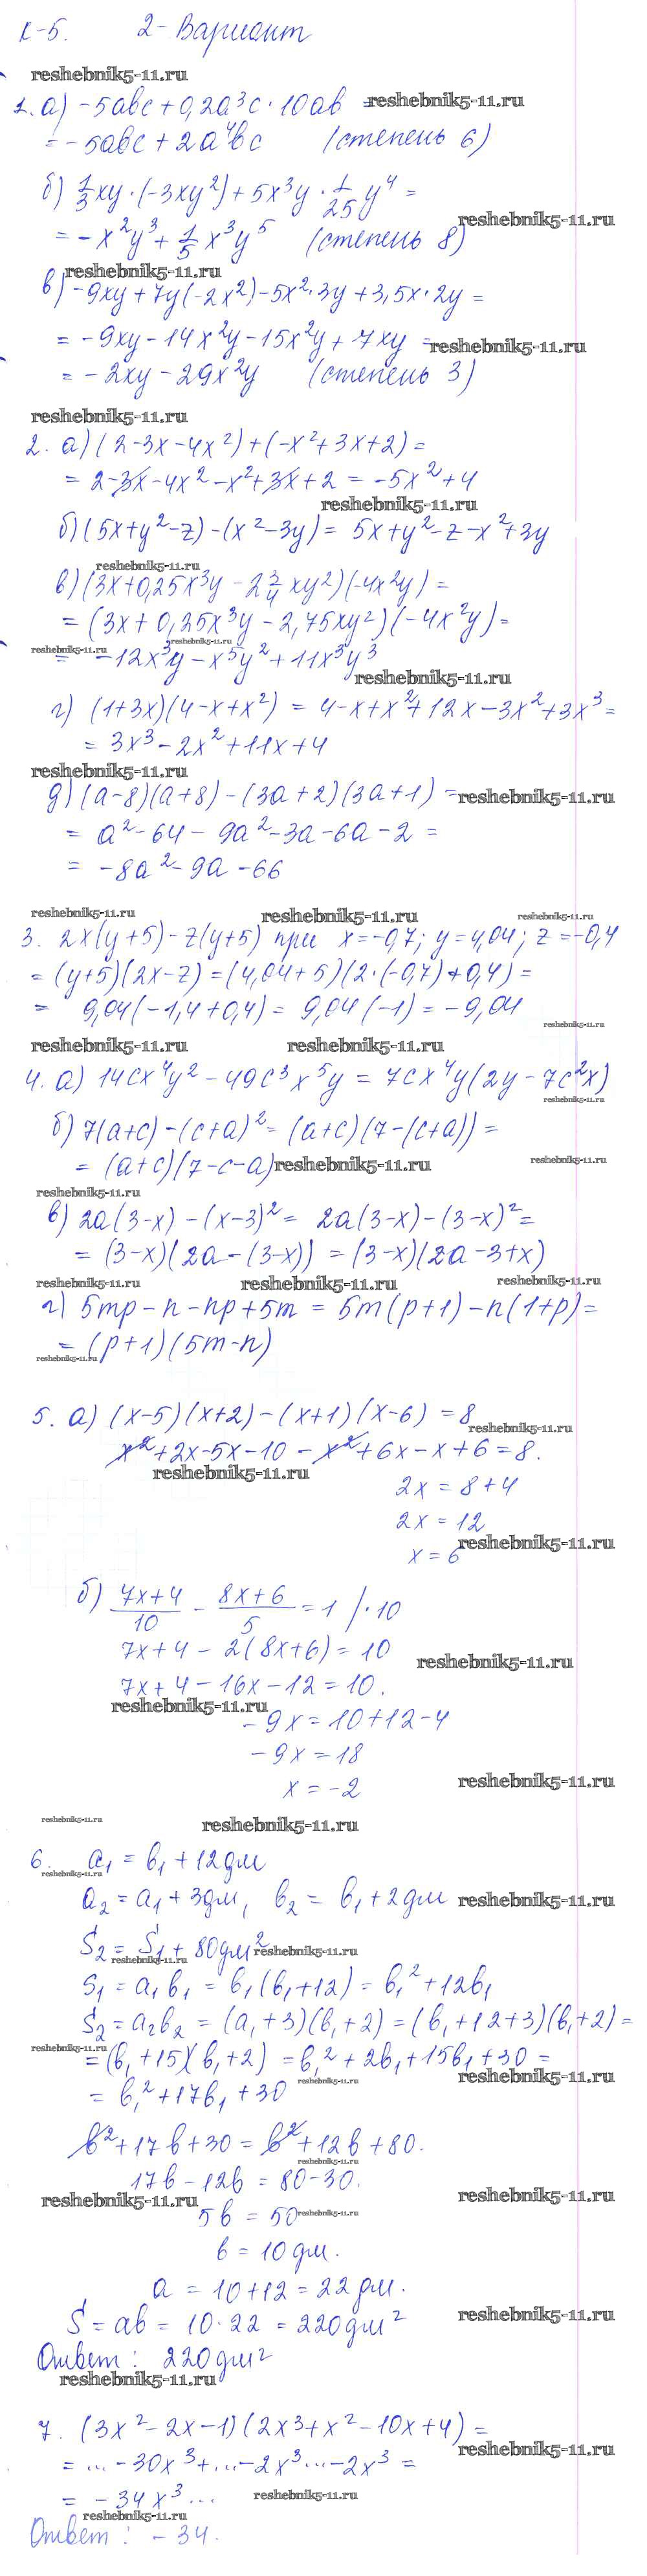 К-5. 2-Вариант
reshebnik5-11.ru
1. а) -5abc + 0,2a³c · 10ab = reshebnik5-11.ru
= -5abc + 2a⁴bc (степень 6)
б) 1/3 xy · (-3xy²) + 5x³y · 1/25 y⁴ =
reshebnik5-11.ru
= -x²y³ + 1/5 x³y⁵ (степень 8)
reshebnik5-11.ru
в) -9xy + 7y(-2x²) - 5x² · 3y + 3,5x · 2y =
= -9xy - 14x²y - 15x²y + 7xy = reshebnik5-11.ru
= -2xy - 29x²y (степень 3)
reshebnik5-11.ru
2. а) (2-3x-4x²) + (-x²+3x+2) =
= 2-3x-4x²-x²+3x+2 = -5x²+4
reshebnik5-11.ru
б) (5x+y²-z) - (x²-3y) = 5x+y²-z-x²+3y
reshebnik5-11.ru
в) (3x+0,25x³y - 2 3/4 xy²)(-4x²y) =
= (3x + 0,25x³y - 2,75xy²)(-4x²y) =
reshebnik5-11.ru reshebnik5-11.ru
= -12x³y - x⁵y² + 11x³y³
reshebnik5-11.ru
г) (1+3x)(4-x+x²) = 4-x+x²+12x-3x²+3x³ =
= 3x³-2x²+11x+4
reshebnik5-11.ru
д) (a-8)(a+8) - (3a+2)(3a+1) = reshebnik5-11.ru
= a²-64 - 9a²-3a-6a-2 =
= -8a²-9a-66
reshebnik5-11.ru reshebnik5-11.ru
3. 2x(y+5) - z(y+5) при x=-0,7; y=4,04; z=-0,4
= (y+5)(2x-z) = (4,04+5)(2·(-0,7)+0,4) =
= 9,04(-1,4+0,4) = 9,04(-1) = -9,04
reshebnik5-11.ru
reshebnik5-11.ru reshebnik5-11.ru
4. а) 14cx⁴y² - 49c³x⁵y = 7cx⁴y(2y-7c²x)
reshebnik5-11.ru
б) 7(a+c) - (c+a)² = (a+c)(7-(c+a)) =
= (a+c)(7-c-a) reshebnik5-11.ru reshebnik5-11.ru
reshebnik5-11.ru
в) 2a(3-x) - (x-3)² = 2a(3-x) - (3-x)² =
= (3-x)(2a-(3-x)) = (3-x)(2a-3+x)
reshebnik5-11.ru reshebnik5-11.ru reshebnik5-11.ru
г) 5mp - n - np + 5m = 5m(p+1) - n(1+p) =
= (p+1)(5m-n)
reshebnik5-11.ru
5. а) (x-5)(x+2) - (x+1)(x-6) = 8
reshebnik5-11.ru
x²+2x-5x-10 - x²+6x-x+6 = 8.
reshebnik5-11.ru
2x = 8+4
2x = 12
x = 6 reshebnik5-11.ru
б) (7x+4)/10 - (8x+6)/5 = 1 /·10
7x+4 - 2(8x+6) = 10
reshebnik5-11.ru
7x+4-16x-12 = 10.
reshebnik5-11.ru
-9x = 10+12-4
-9x = 18
x = -2 reshebnik5-11.ru
reshebnik5-11.ru reshebnik5-11.ru
6. a₁ = b₁ + 12дм
reshebnik5-11.ru
a₂ = a₁ + 3дм, b₂ = b₁ + 2дм reshebnik5-11.ru
S₂ = S₁ + 80дм² reshebnik5-11.ru
reshebnik5-11.ru
S₁ = a₁b₁ = b₁(b₁+12) = b₁²+12b₁
S₂ = a₂b₂ = (a₁+3)(b₁+2) = (b₁+12+3)(b₁+2) =
reshebnik5-11.ru
= (b₁+15)(b₁+2) = b₁²+2b₁+15b₁+30 =
reshebnik5-11.ru reshebnik5-11.ru
= b₁²+17b₁+30
b²+17b+30 = b²+12b+80.
reshebnik5-11.ru
17b-12b = 80-30.
reshebnik5-11.ru reshebnik5-11.ru
5b = 50 reshebnik5-11.ru
b = 10дм.
a = 10+12 = 22дм.
S = ab = 10·22 = 220дм² reshebnik5-11.ru
Ответ: 220дм²
reshebnik5-11.ru
7. (3x²-2x-1)(2x³+x²-10x+4) =
reshebnik5-11.ru
= ...-30x³+...-2x³...-2x³ =
= -34x³... reshebnik5-11.ru
reshebnik5-11.ru
Ответ: -34.